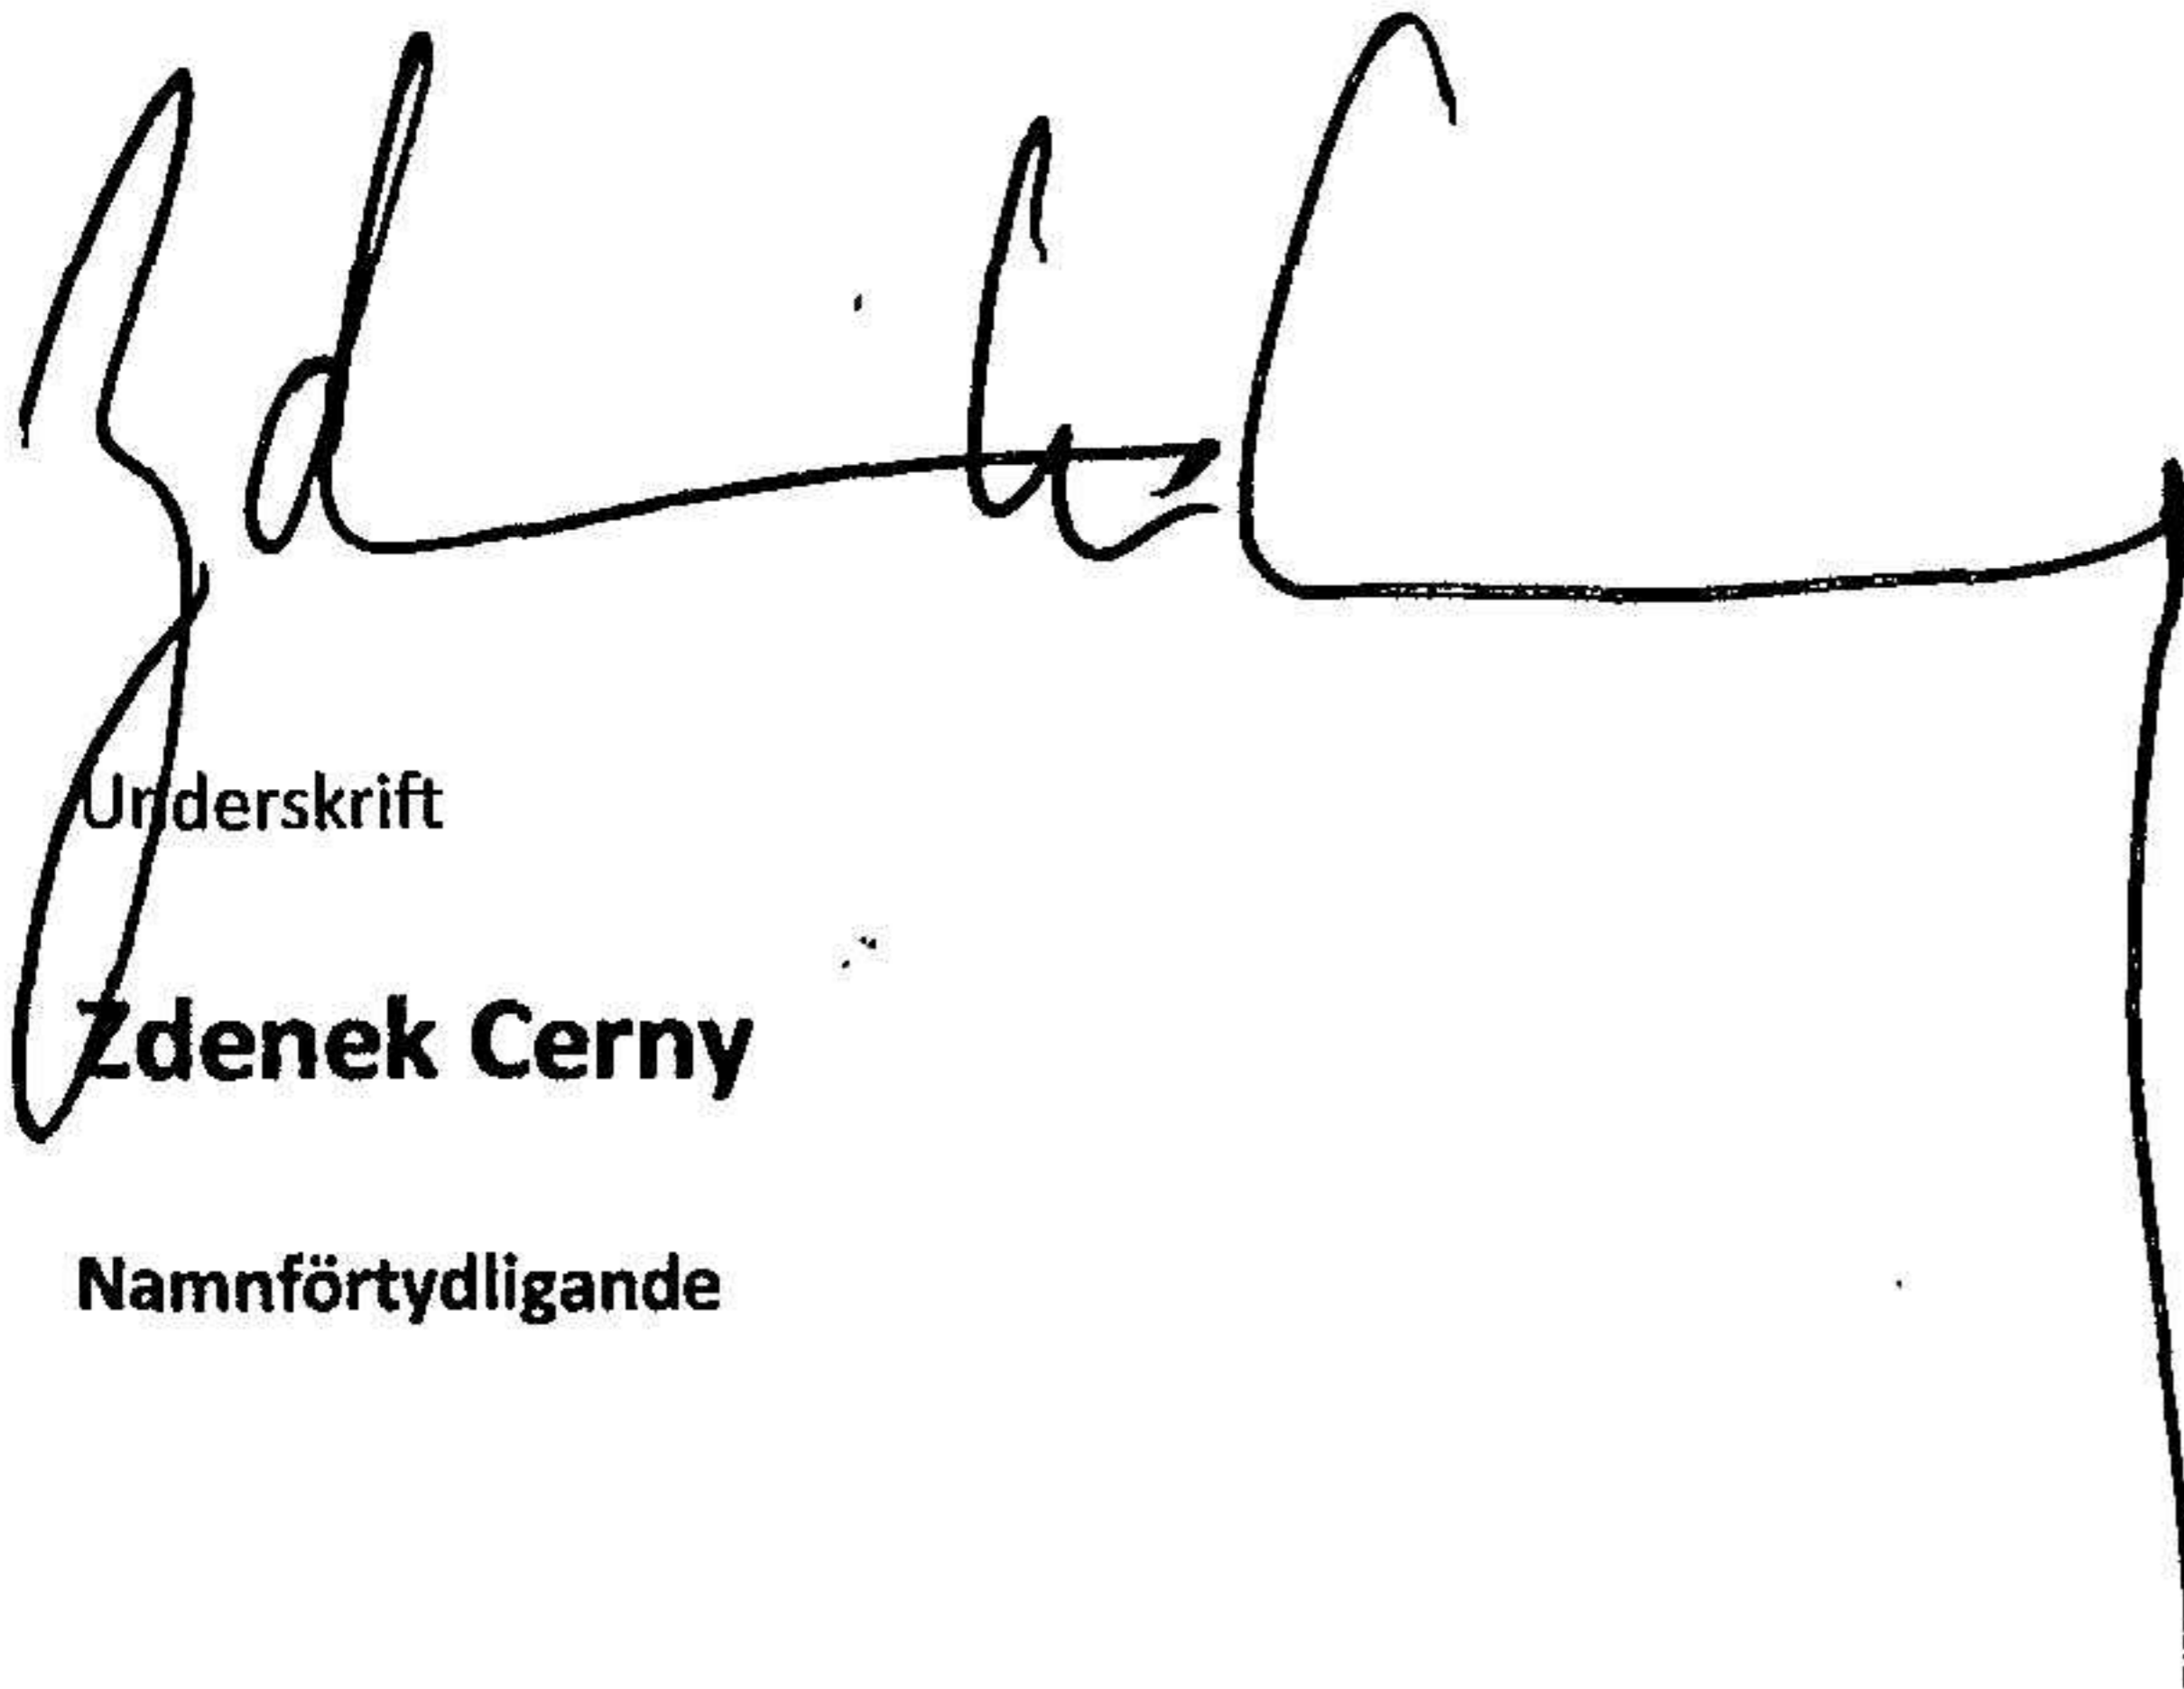 Underskrift
Zdenek Cerny
Namnförtydligande